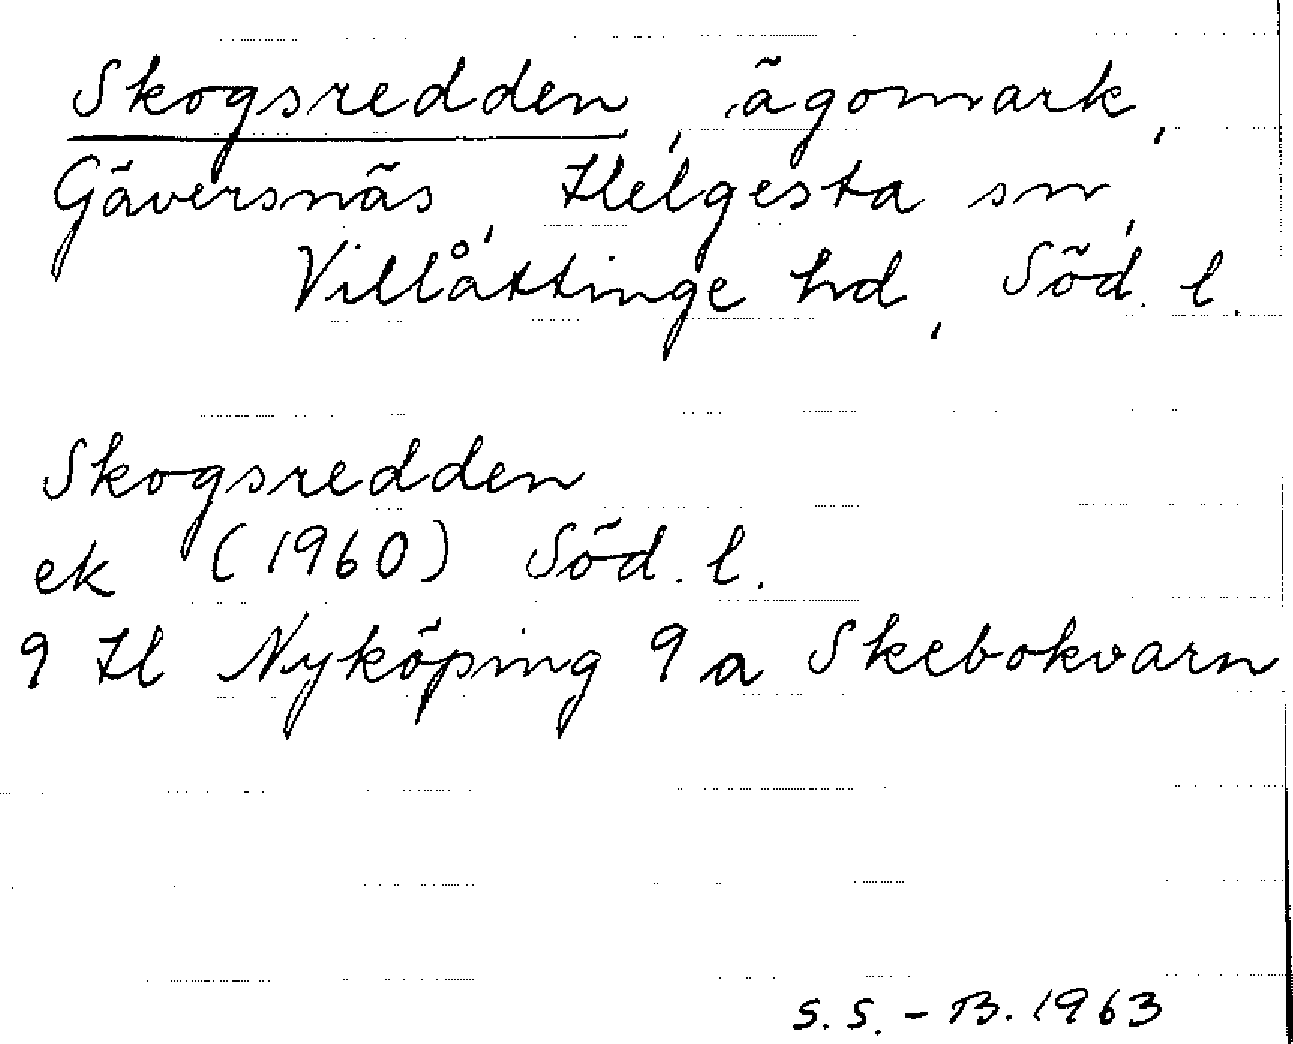 Skogsredden, ägomark,
Gäversnäs, Helgesta sn,
Villåttinge hd, Söd. l.
Skogsredden
ek (1960) Söd. l.
9 H Nyköping 9 a Skebokvarn
S. S. - B. 1963